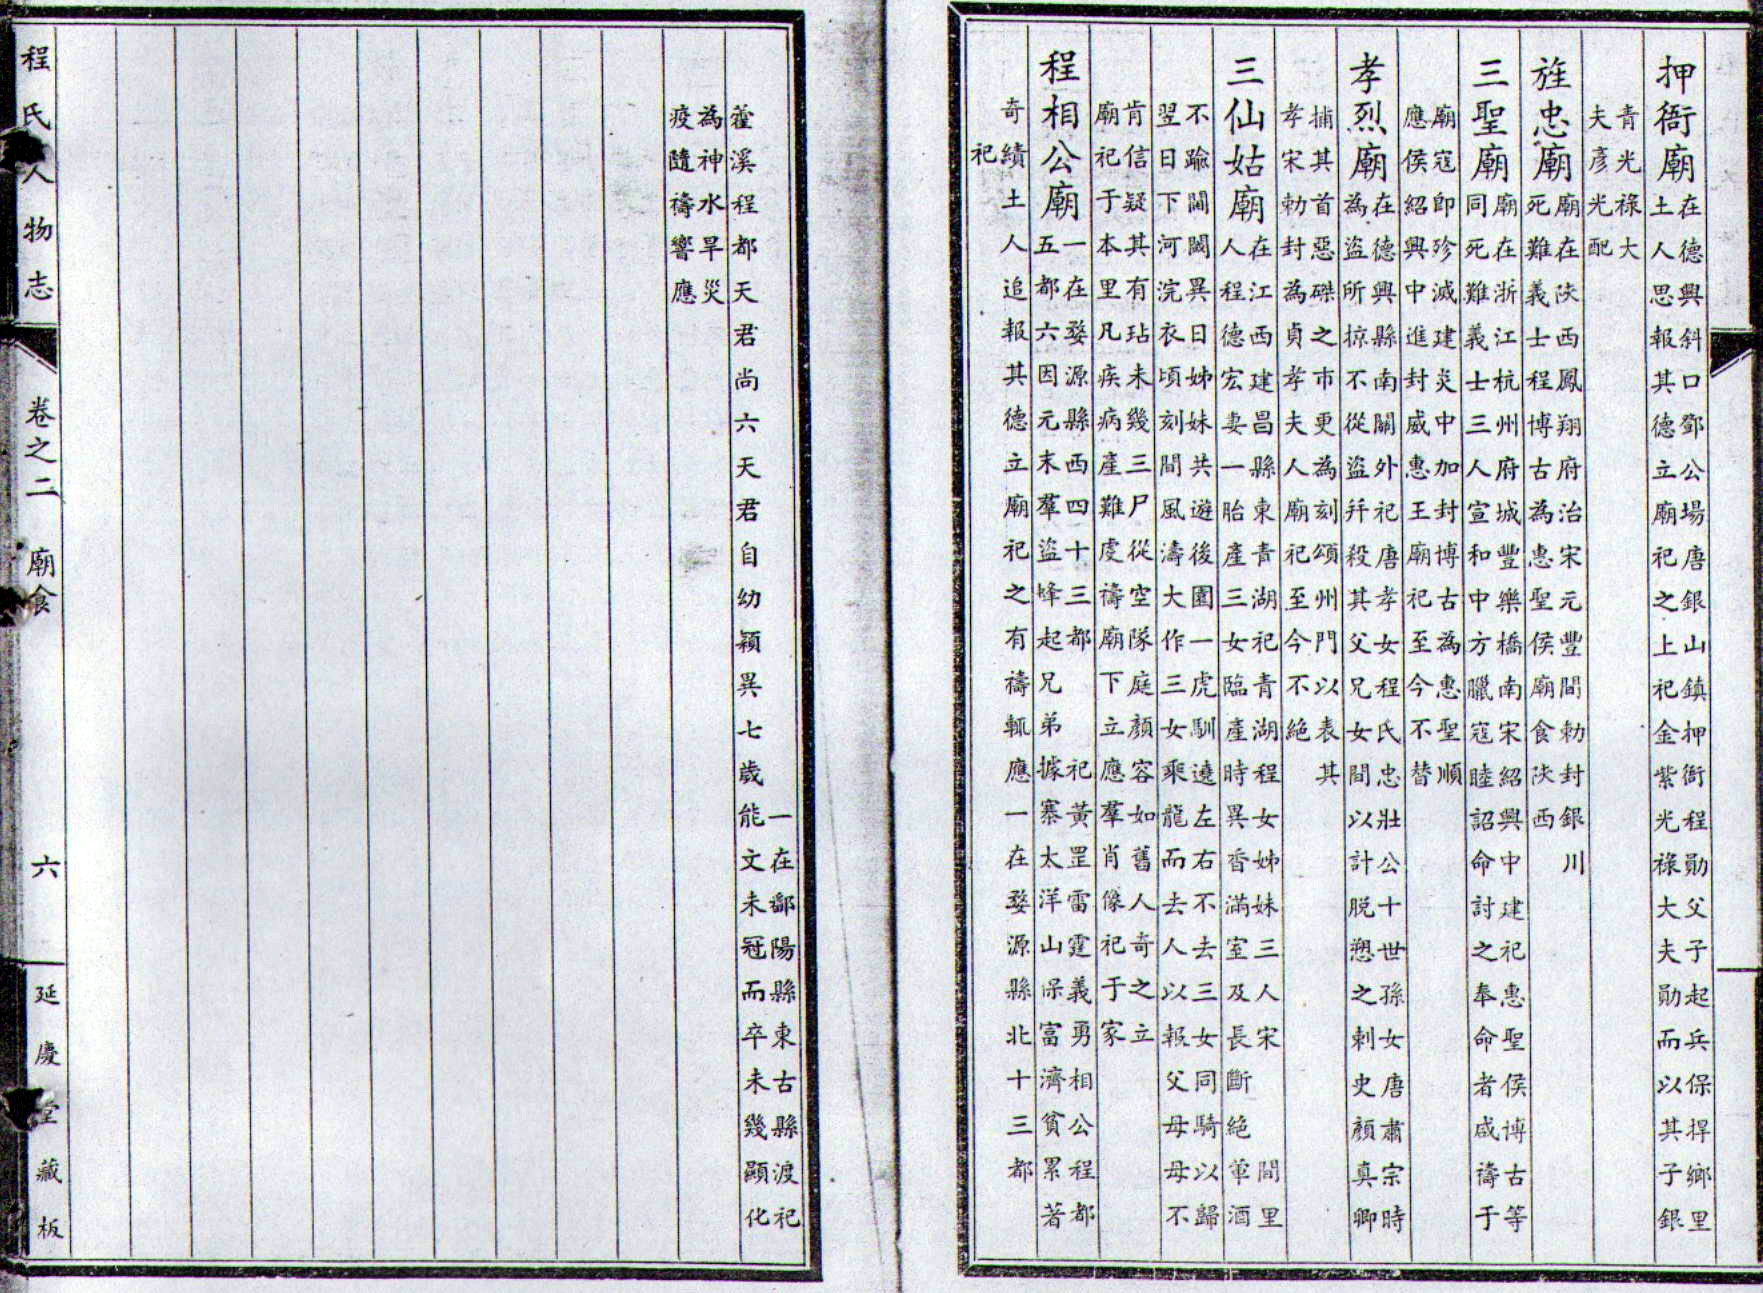 押衙廟
在德興斜口鄧公場唐銀山鎮押衙程勛父子起兵保捍鄉里
土人思報其德立廟祀之上祀金紫光祿大夫勛而以其子銀
青光祿大
夫彥光配
旌忠廟
廟在陝西鳳翔府治宋元豐間勅封銀川
死難義士程博古為惠聖侯廟食陝西
三聖廟
廟在浙江杭州府城豐樂橋南宋紹興中建祀惠聖侯博古等
同死難義士三人宣和中方臘寇睦詔命討之奉命者咸禱于
廟寇即殄滅建炎中加封博古為惠聖順
應侯紹興中進封威惠王廟祀至今不替
孝烈廟
在德興縣南關外祀唐孝女程氏忠壯公十世孫女唐肅宗時
為盜所掠不從盜幷殺其父兄女間以計脫愬之刺史顏真卿
捕其首惡磔之市更為刻頌州門以表其
孝宋勅封為貞孝夫人廟祀至今不絕
三仙姑廟
在江西建昌縣東青湖祀青湖程女姊妹三人宋 間里
人程德宏妻一胎產三女臨產時異香滿室及長斷絕葷酒
不踰閫閾異日姊妹共遊後園一虎馴遶左右不去三女同騎以歸
翌日下河浣衣頃刻間風濤大作三女乘龍而去人以報父母母不
肯信疑其有玷未幾三尸從空隊庭顏容如舊人奇之立
廟祀于本里凡疾病產難虔禱廟下立應羣肖像祀于家
程相公廟
一在婺源縣西四十三都 祀黃罡雷霆義勇相公程都
五都六因元末羣盜蜂起兄弟據寨太洋山保富濟貧累著
奇績土人追報其德立廟祀之有禱輒應一在婺源縣北十三都
祀
一在鄱陽縣東古縣渡祀
藿溪程都天君尚六天君自幼穎異七歲能文未冠而卒未幾顯化
為神水旱災
疫隨禱響應
程氏人物志 卷之二 廟食 六 延慶堂藏板